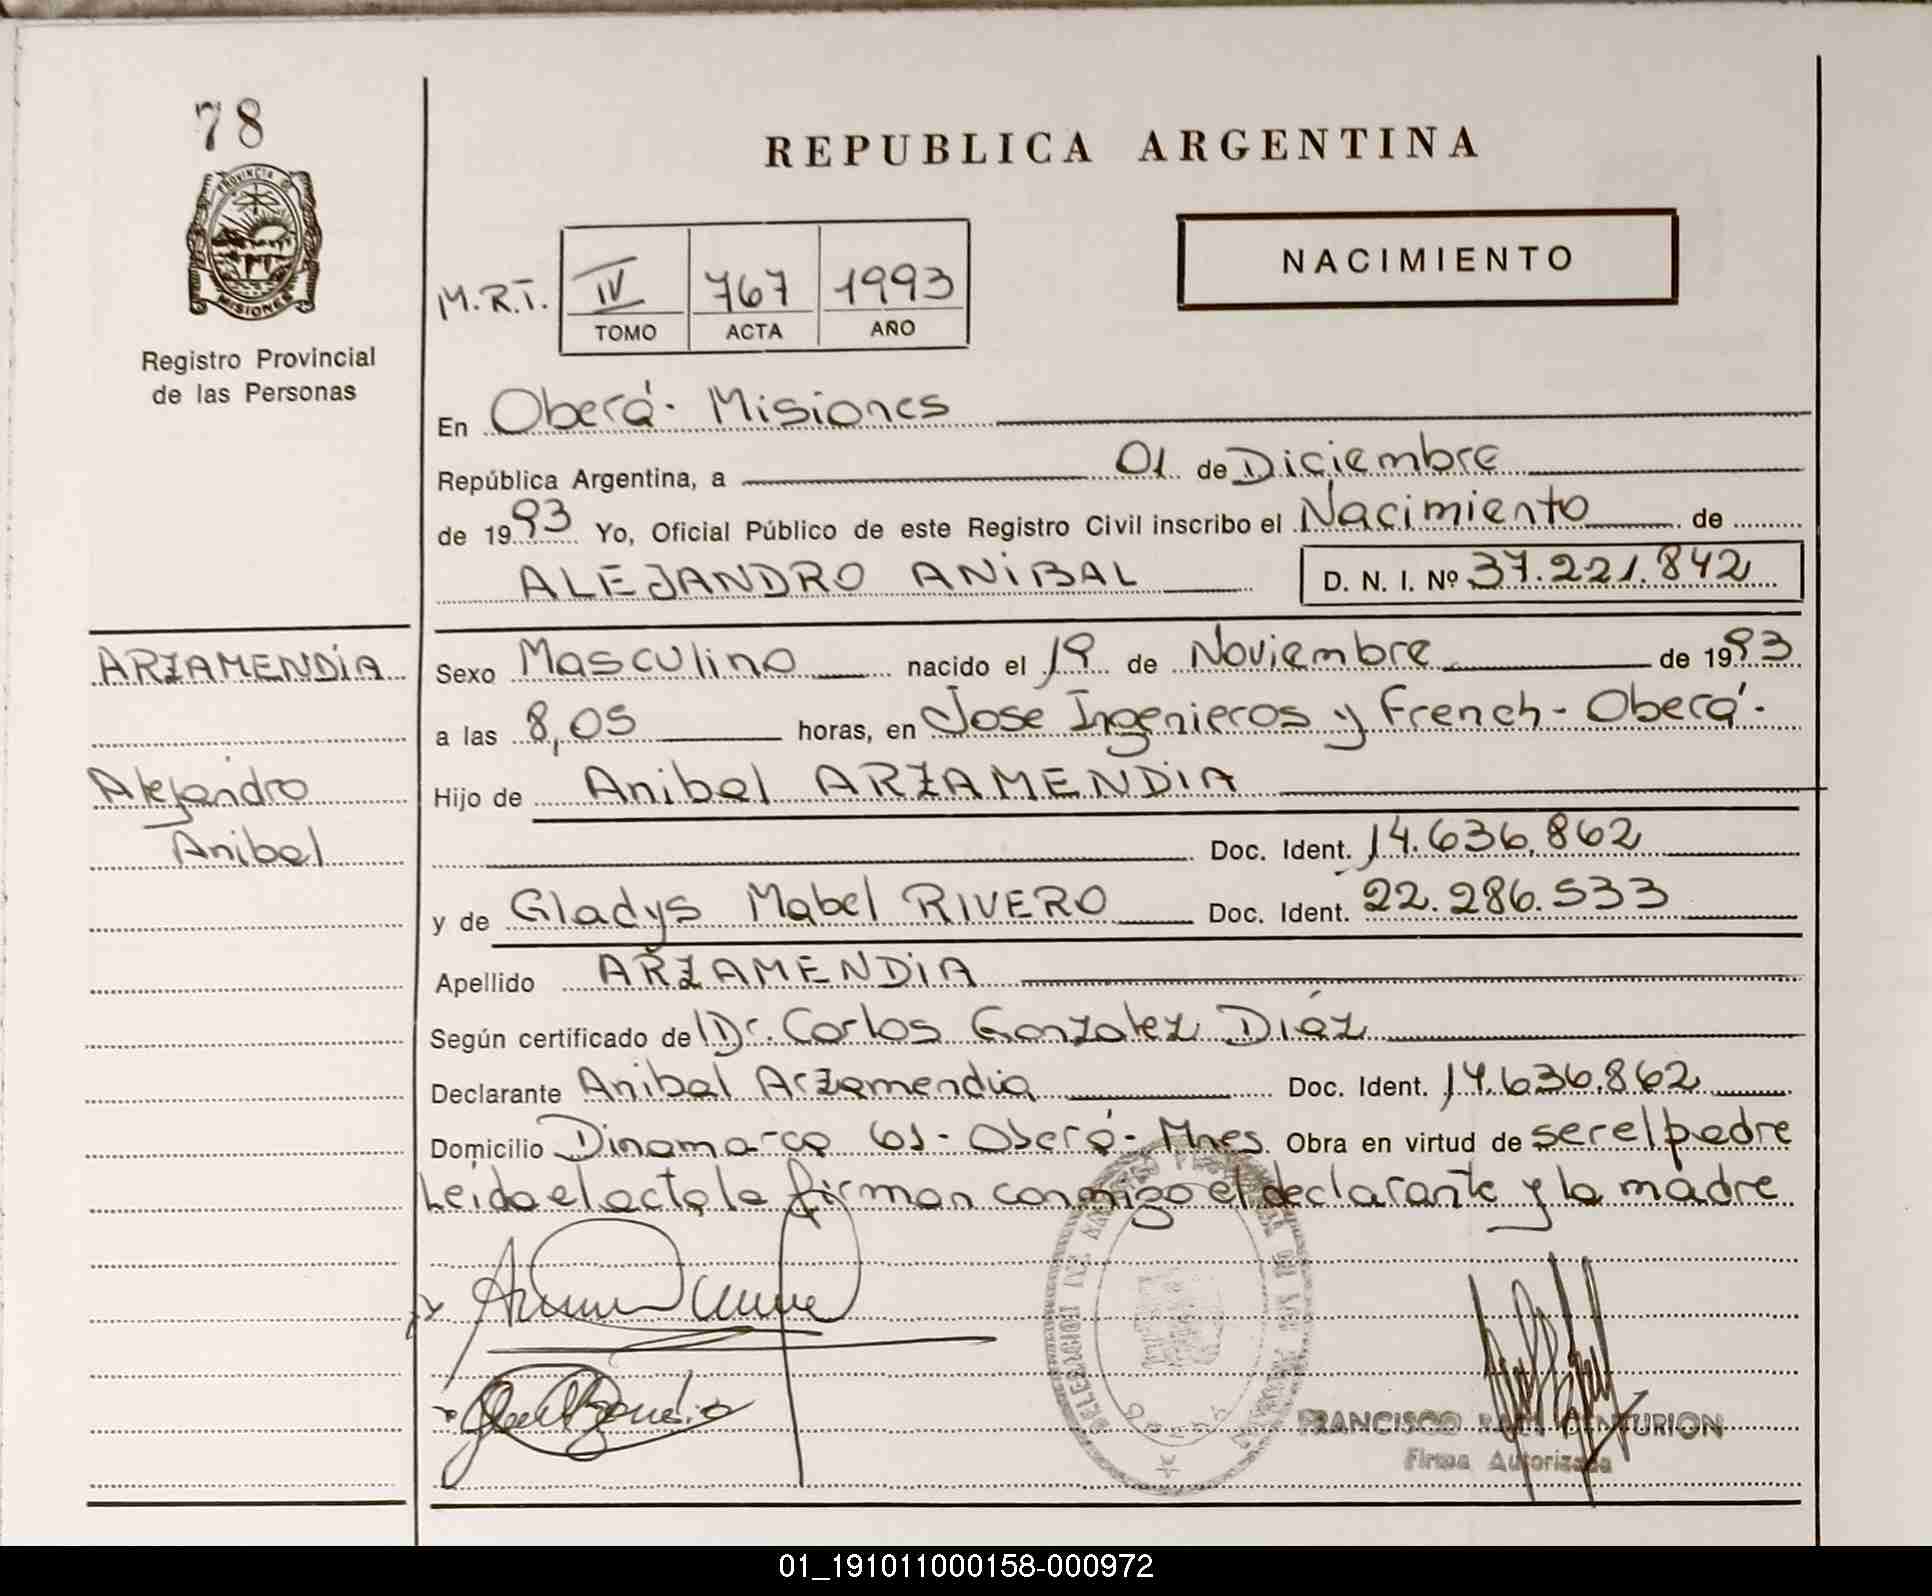 78
PROVINCIA DE
MISIONES
Registro Provincial
de las Personas
REPUBLICA ARGENTINA
NACIMIENTO
M.R.T. IV 767 1993
TOMO ACTA AÑO
En Oberá - Misiones
República Argentina, a 01 de Diciembre
de 1993 Yo, Oficial Público de este Registro Civil inscribo el Nacimiento de
ALEJANDRO ANIBAL D. N. I. Nº 37.221.842
ARZAMENDIA
Alejandro
Anibal
Sexo Masculino nacido el 19 de Noviembre de 1993
a las 8,05 horas, en Jose Ingenieros y French - Oberá -
Hijo de Anibal ARZAMENDIA
Doc. Ident. 14.636.862
y de Gladys Mabel RIVERO Doc. Ident. 22.286.533
Apellido ARZAMENDIA
Según certificado de Dr. Carlos Gonzalez Diáz
Declarante Anibal Arzamendia Doc. Ident. 14.636.862
Domicilio Dinamarca 61 - Oberá - Mnes. Obra en virtud de ser el padre
Leida el acta la firman conmigo el declarante y la madre
FRANCISCO CENTURION
Firma Autorizada
01_191011000158-000972